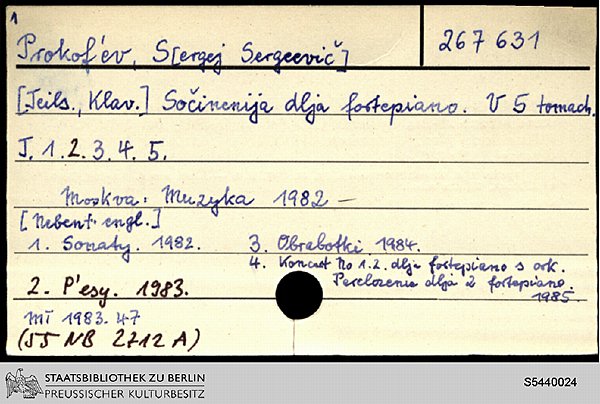 1
Prokof'ev, S[ergej Sergeevič] 267 631
[Teils., Klav.] Sočinenija dlja fortepiano. V 5 tomach.
T. 1. 2. 3. 4. 5.
Moskva: Muzyka 1982 –
[Nebent. engl.]
1. Sonaty. 1982. 3. Obrabotki 1984.
4. Koncert No 1.2. dlja fortepiano s ork.
2. P'esy. 1983. Pereloženie dlja 2 fortepiano.
1985.
MT 1983. 47
(55 NB 2712 A)
STAATSBIBLIOTHEK ZU BERLIN
PREUSSISCHER KULTURBESITZ S5440024